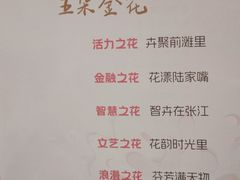 五朵金花
活力之花 卉聚前滩里
金融之花 花漾陆家嘴
智慧之花 智卉在张江
文艺之花 花韵时光里
浪漫之花 芬芳满天物